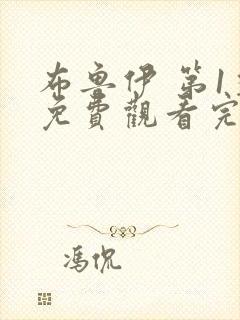 布魯伊 第1
免費觀看完
馮侃